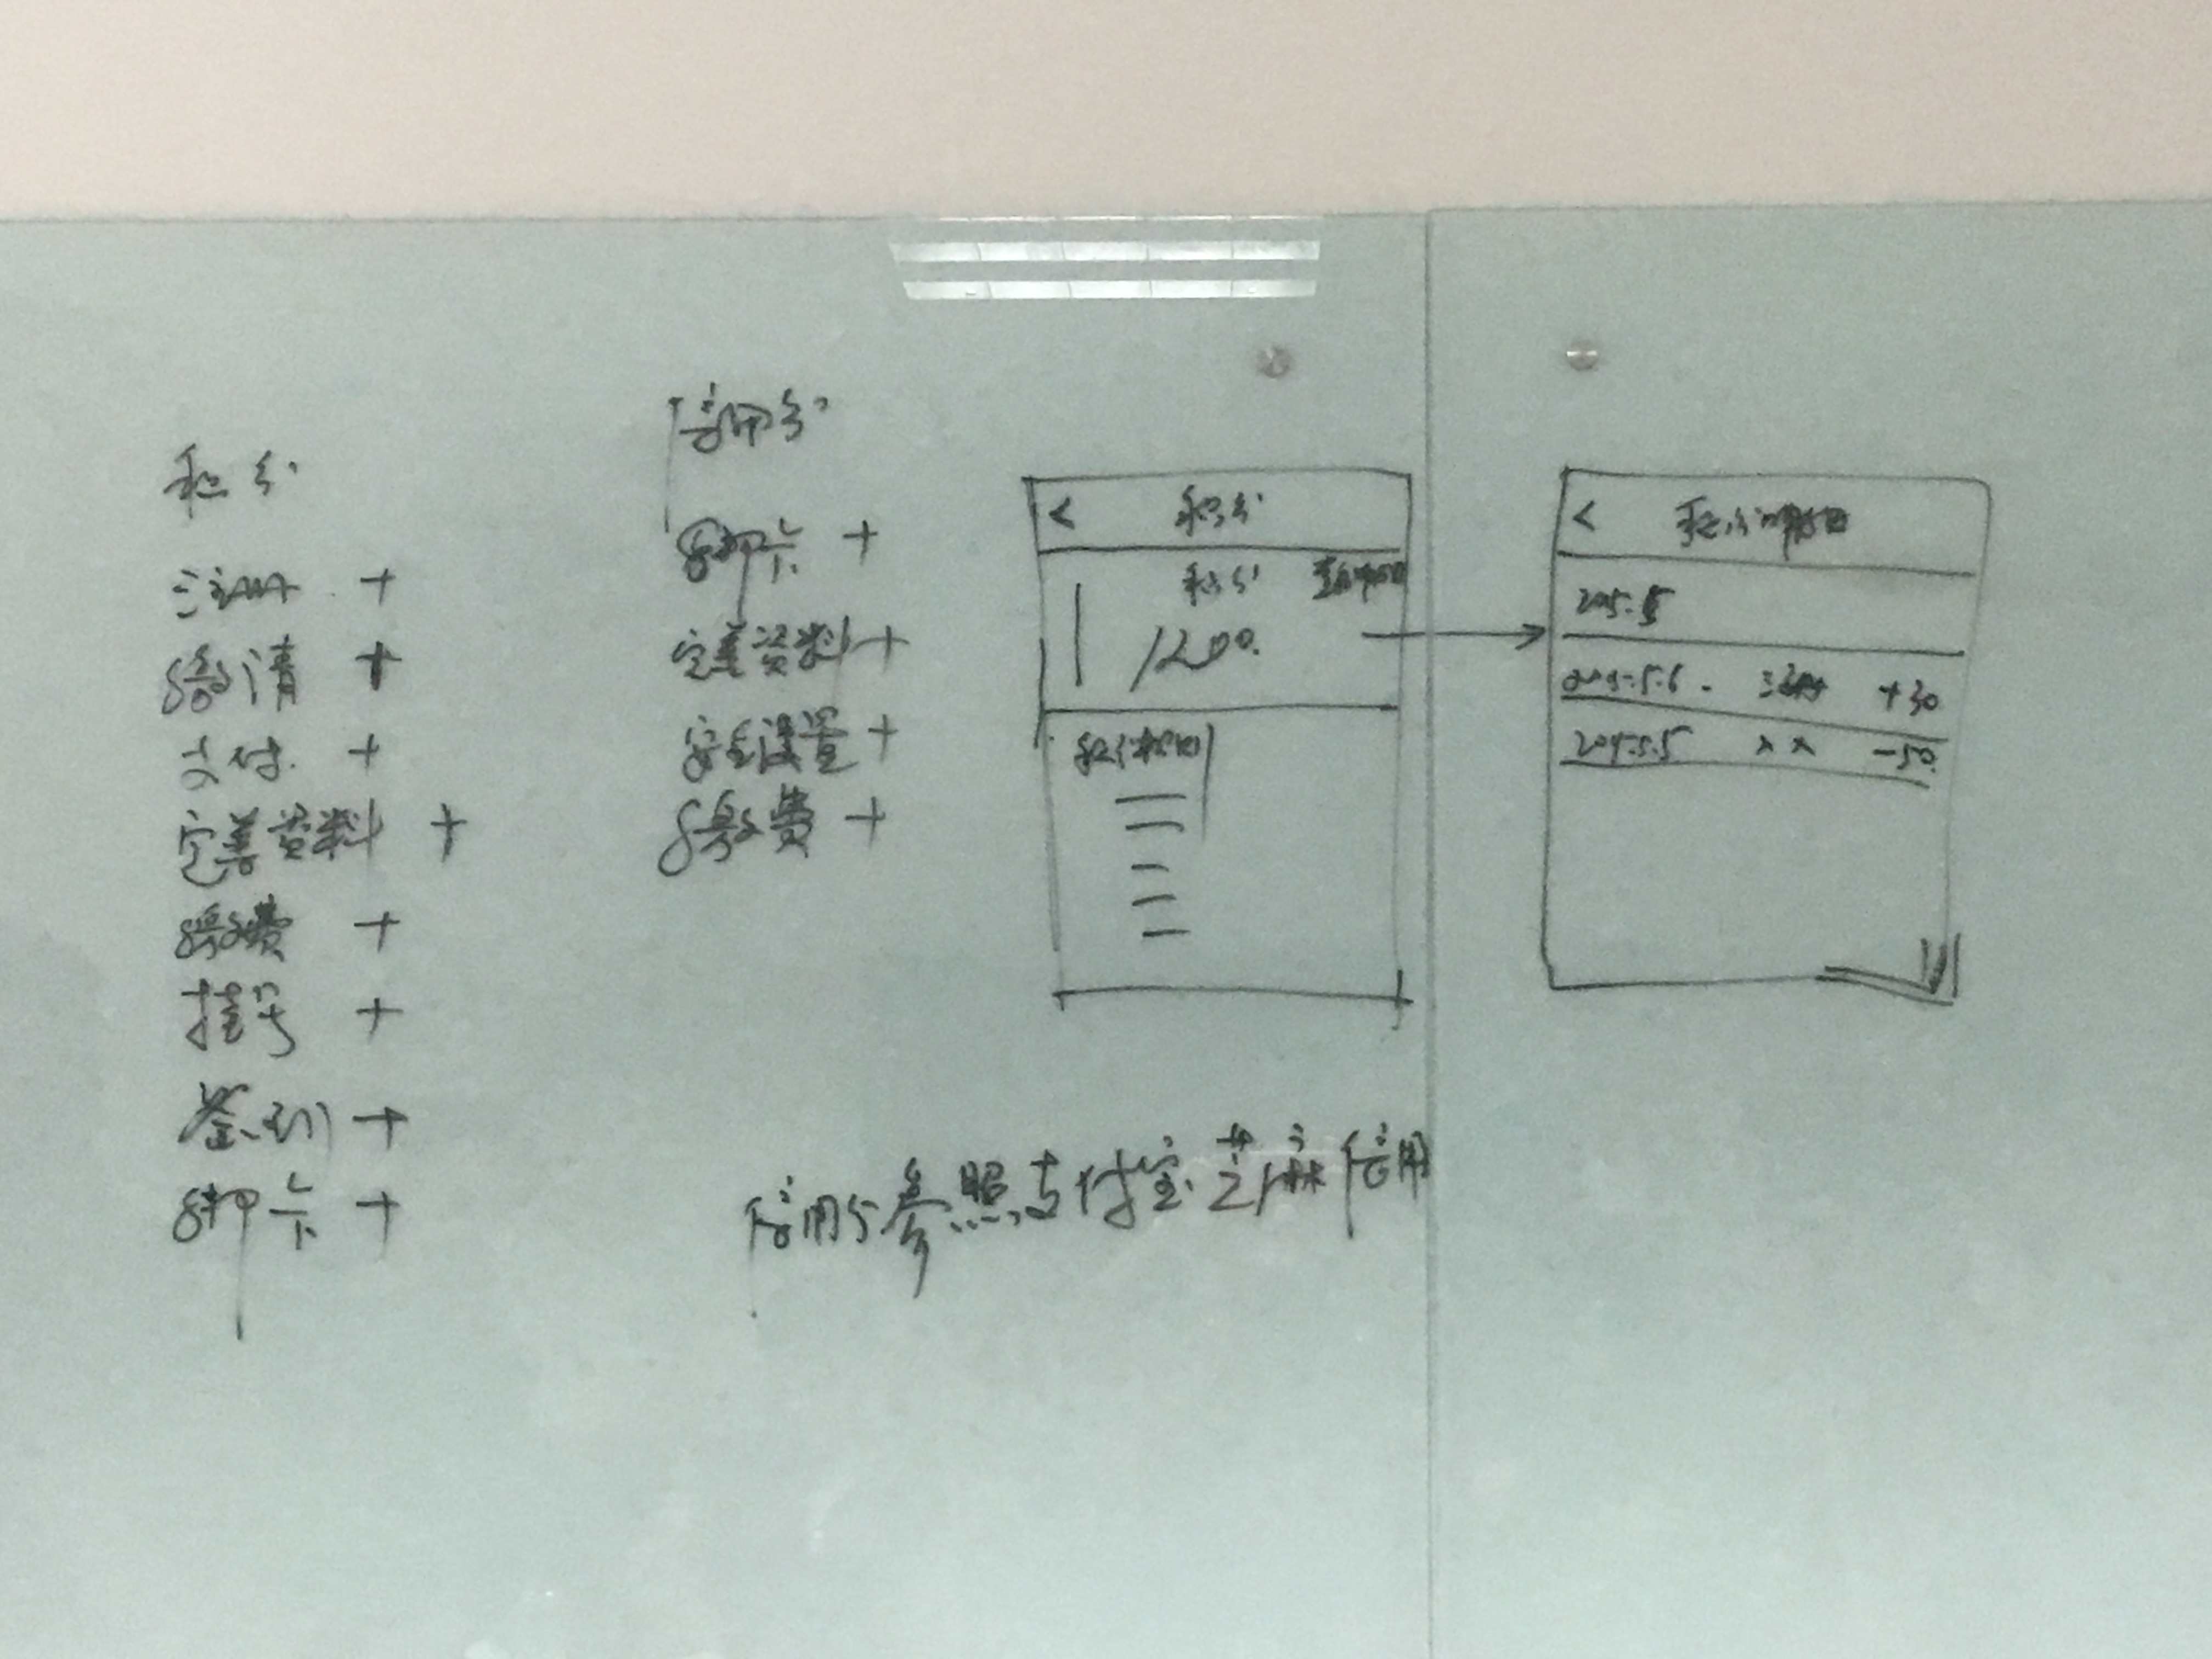 积分
注册 +
邀请 +
支付 +
完善资料 +
缴费 +
挂号 +
签到 +
绑卡 +
信用分
绑卡 +
完善资料 +
安全设置 +
缴费 +
< 积分
积分
1200
积分规则
< 积分明细
2015.5
2015.5.6 注册 +30
2015.5.5 ×× -50
信用分参照支付宝芝麻信用